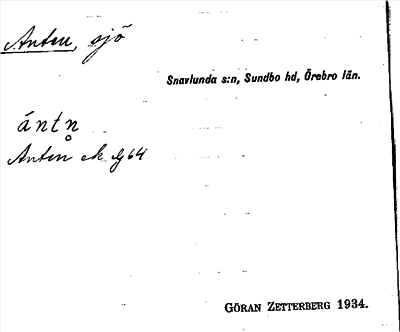 Anten, sjö
Snavlunda s:n, Sundbo hd, Örebro län.
ántn̥
Anten ek Lj 64
GÖRAN ZETTERBERG 1934.